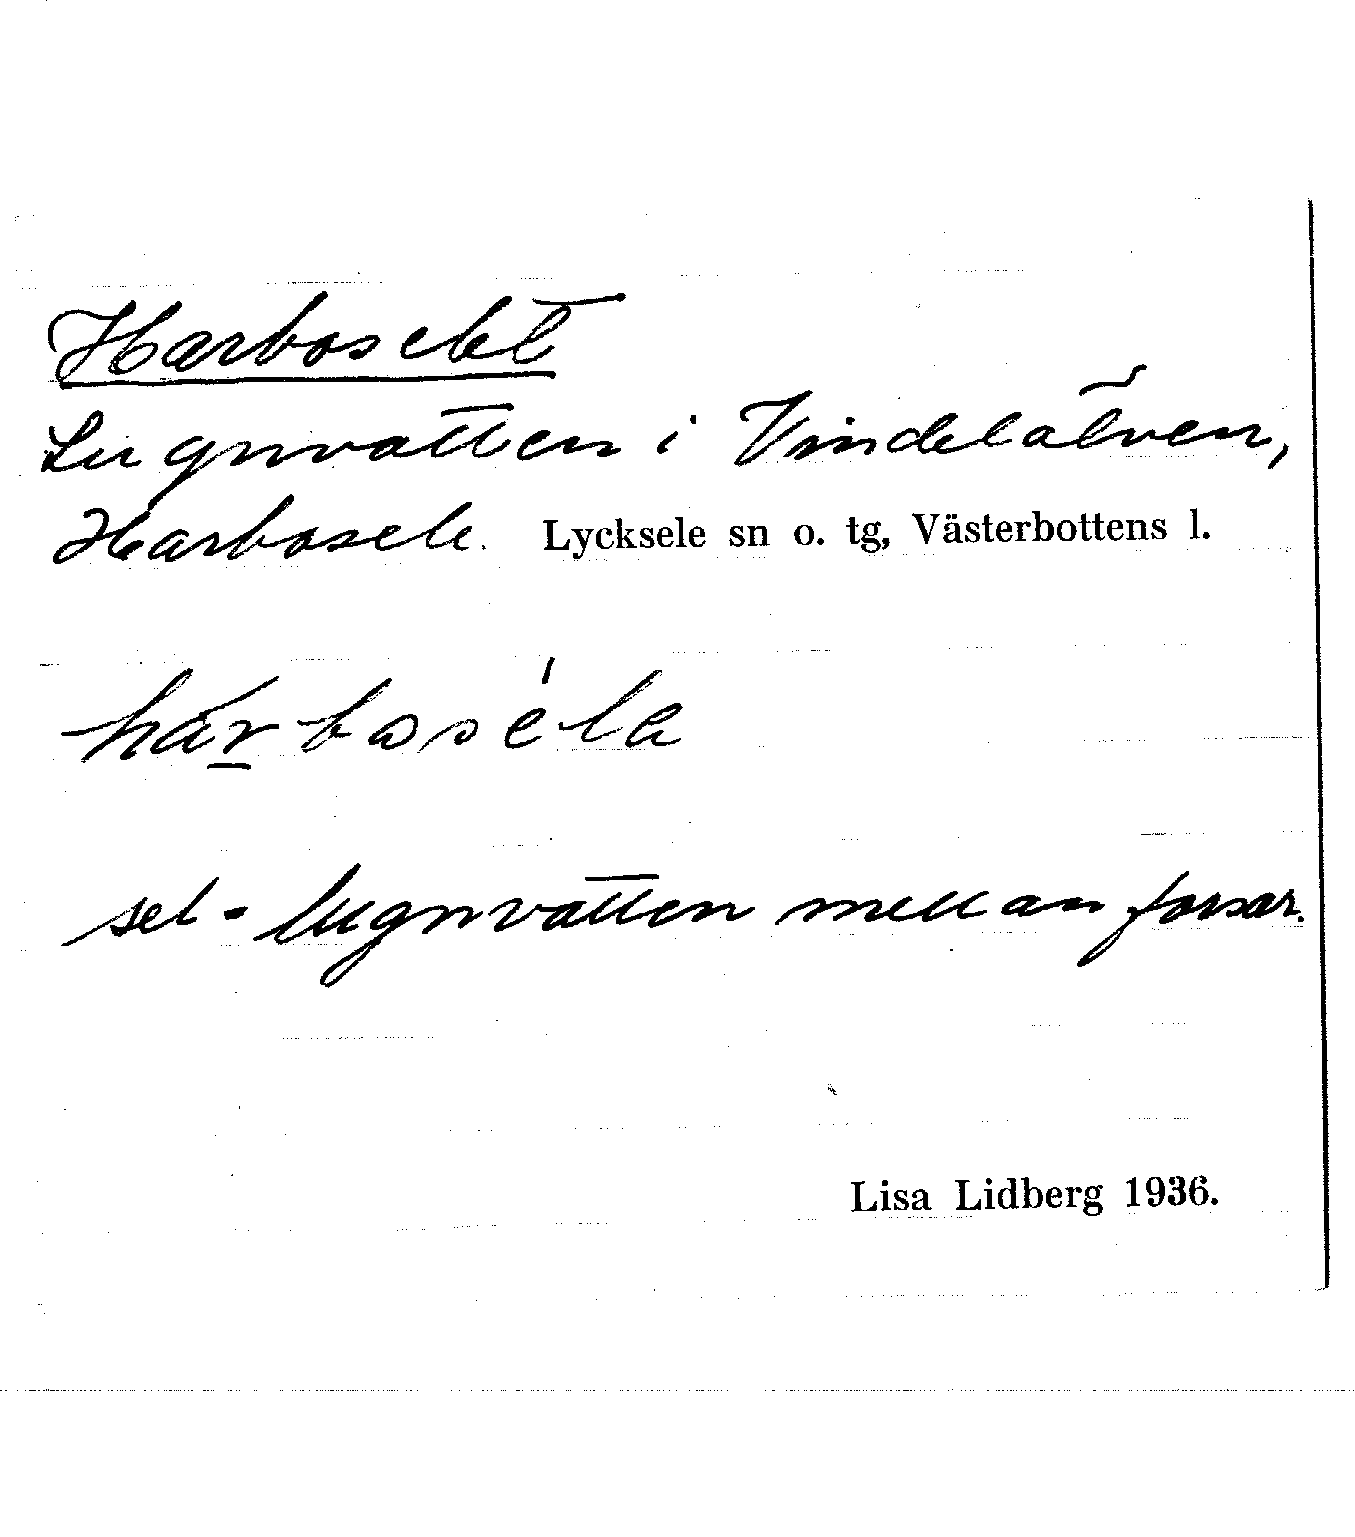 Harboselet
Lugnvatten i Vindelälven,
Harbosele. Lycksele sn o. tg, Västerbottens l.
hárbosе́la
sel - lugnvatten mellan forsar.
Lisa Lidberg 1936.